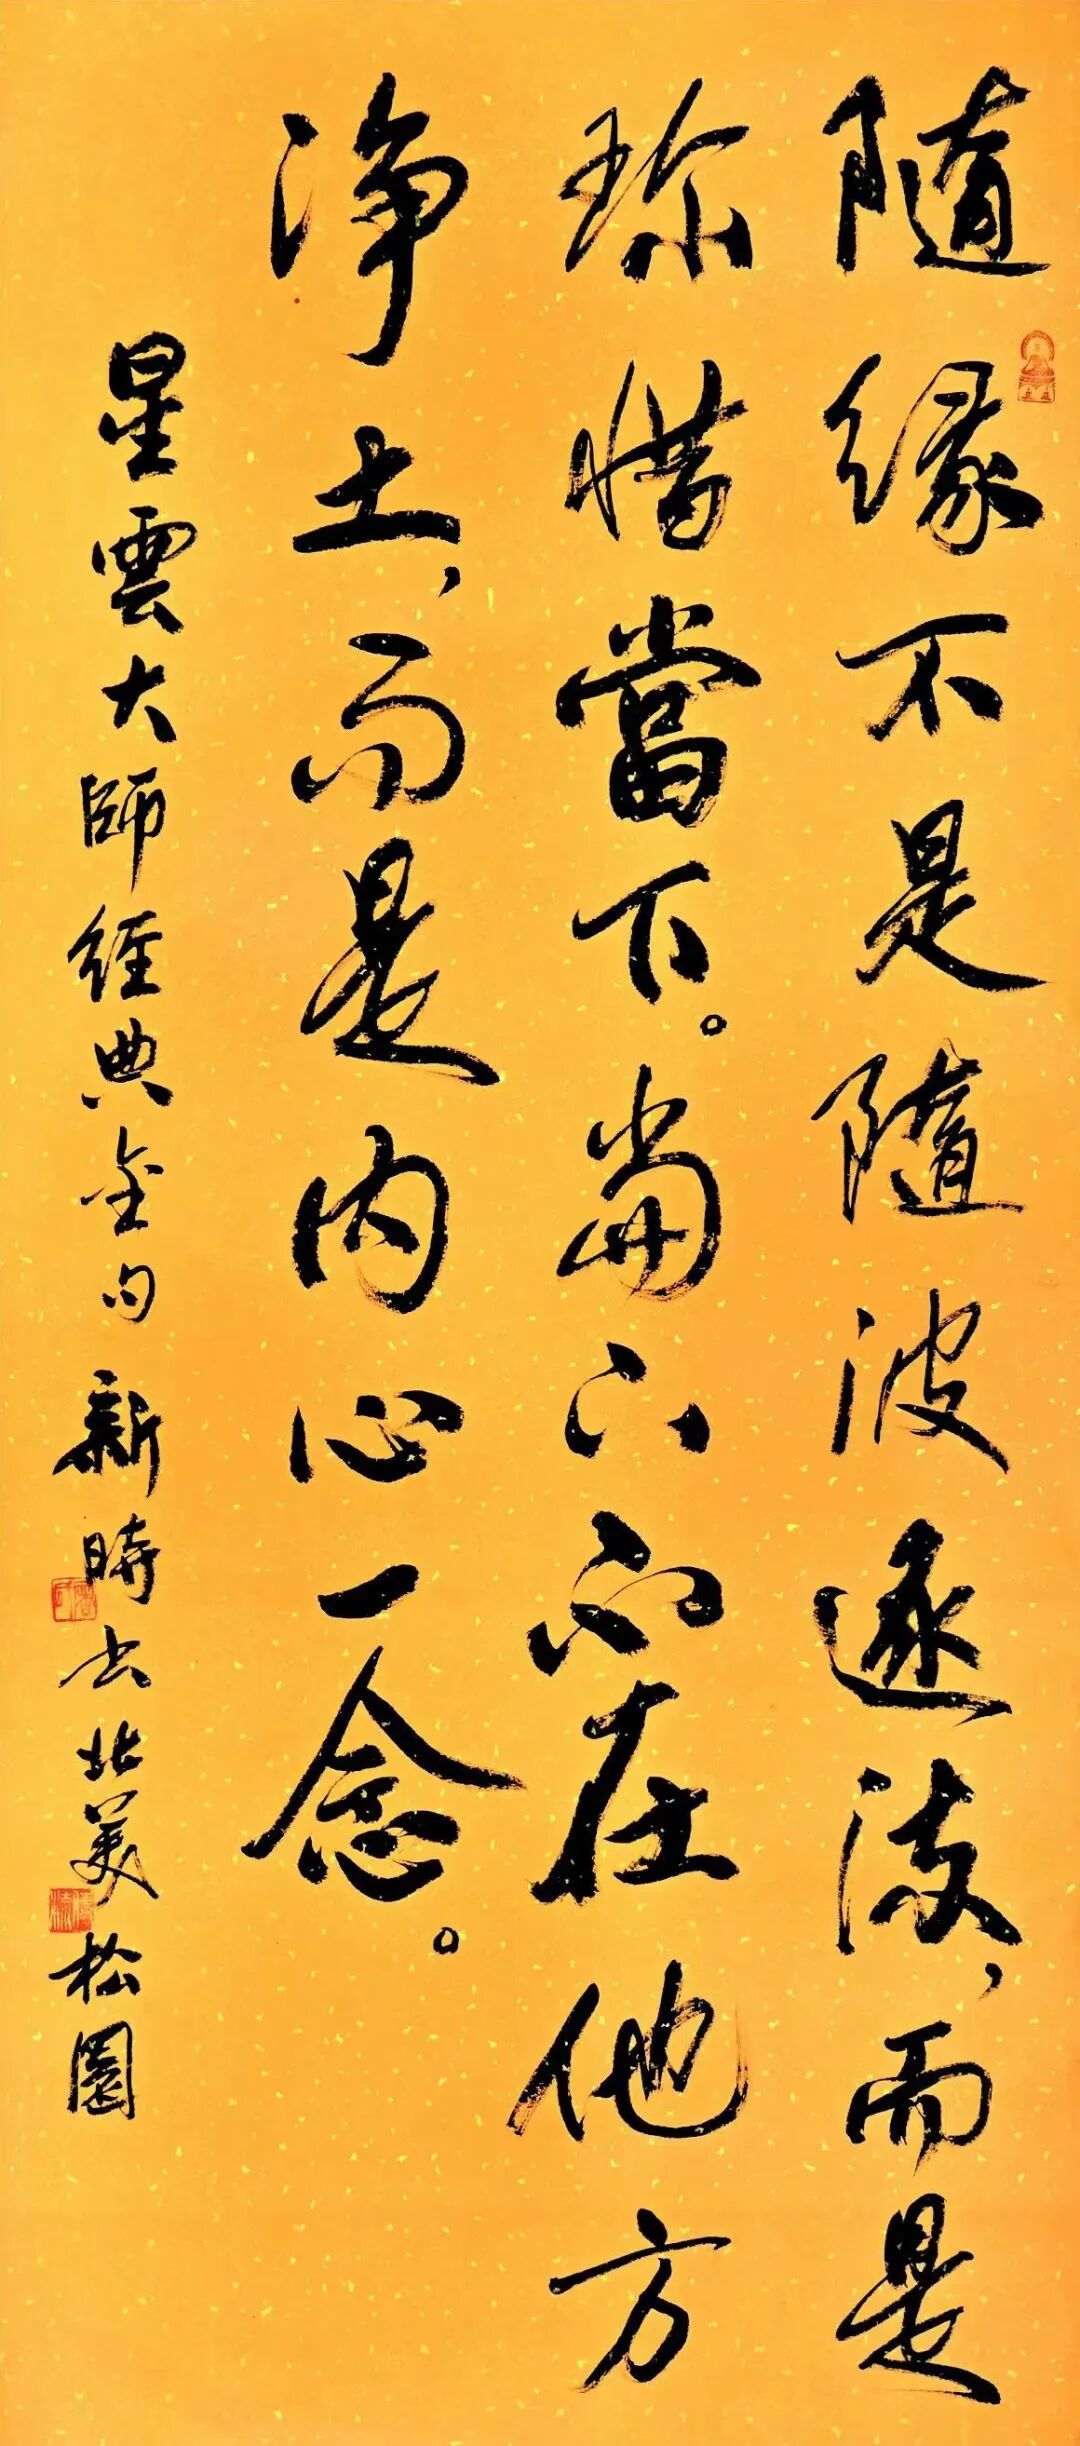 隨緣不是隨波逐流，而是
珍惜當下。當下不在他方
淨土，而是内心一念。
星雲大師經典金句 新時书北美松園